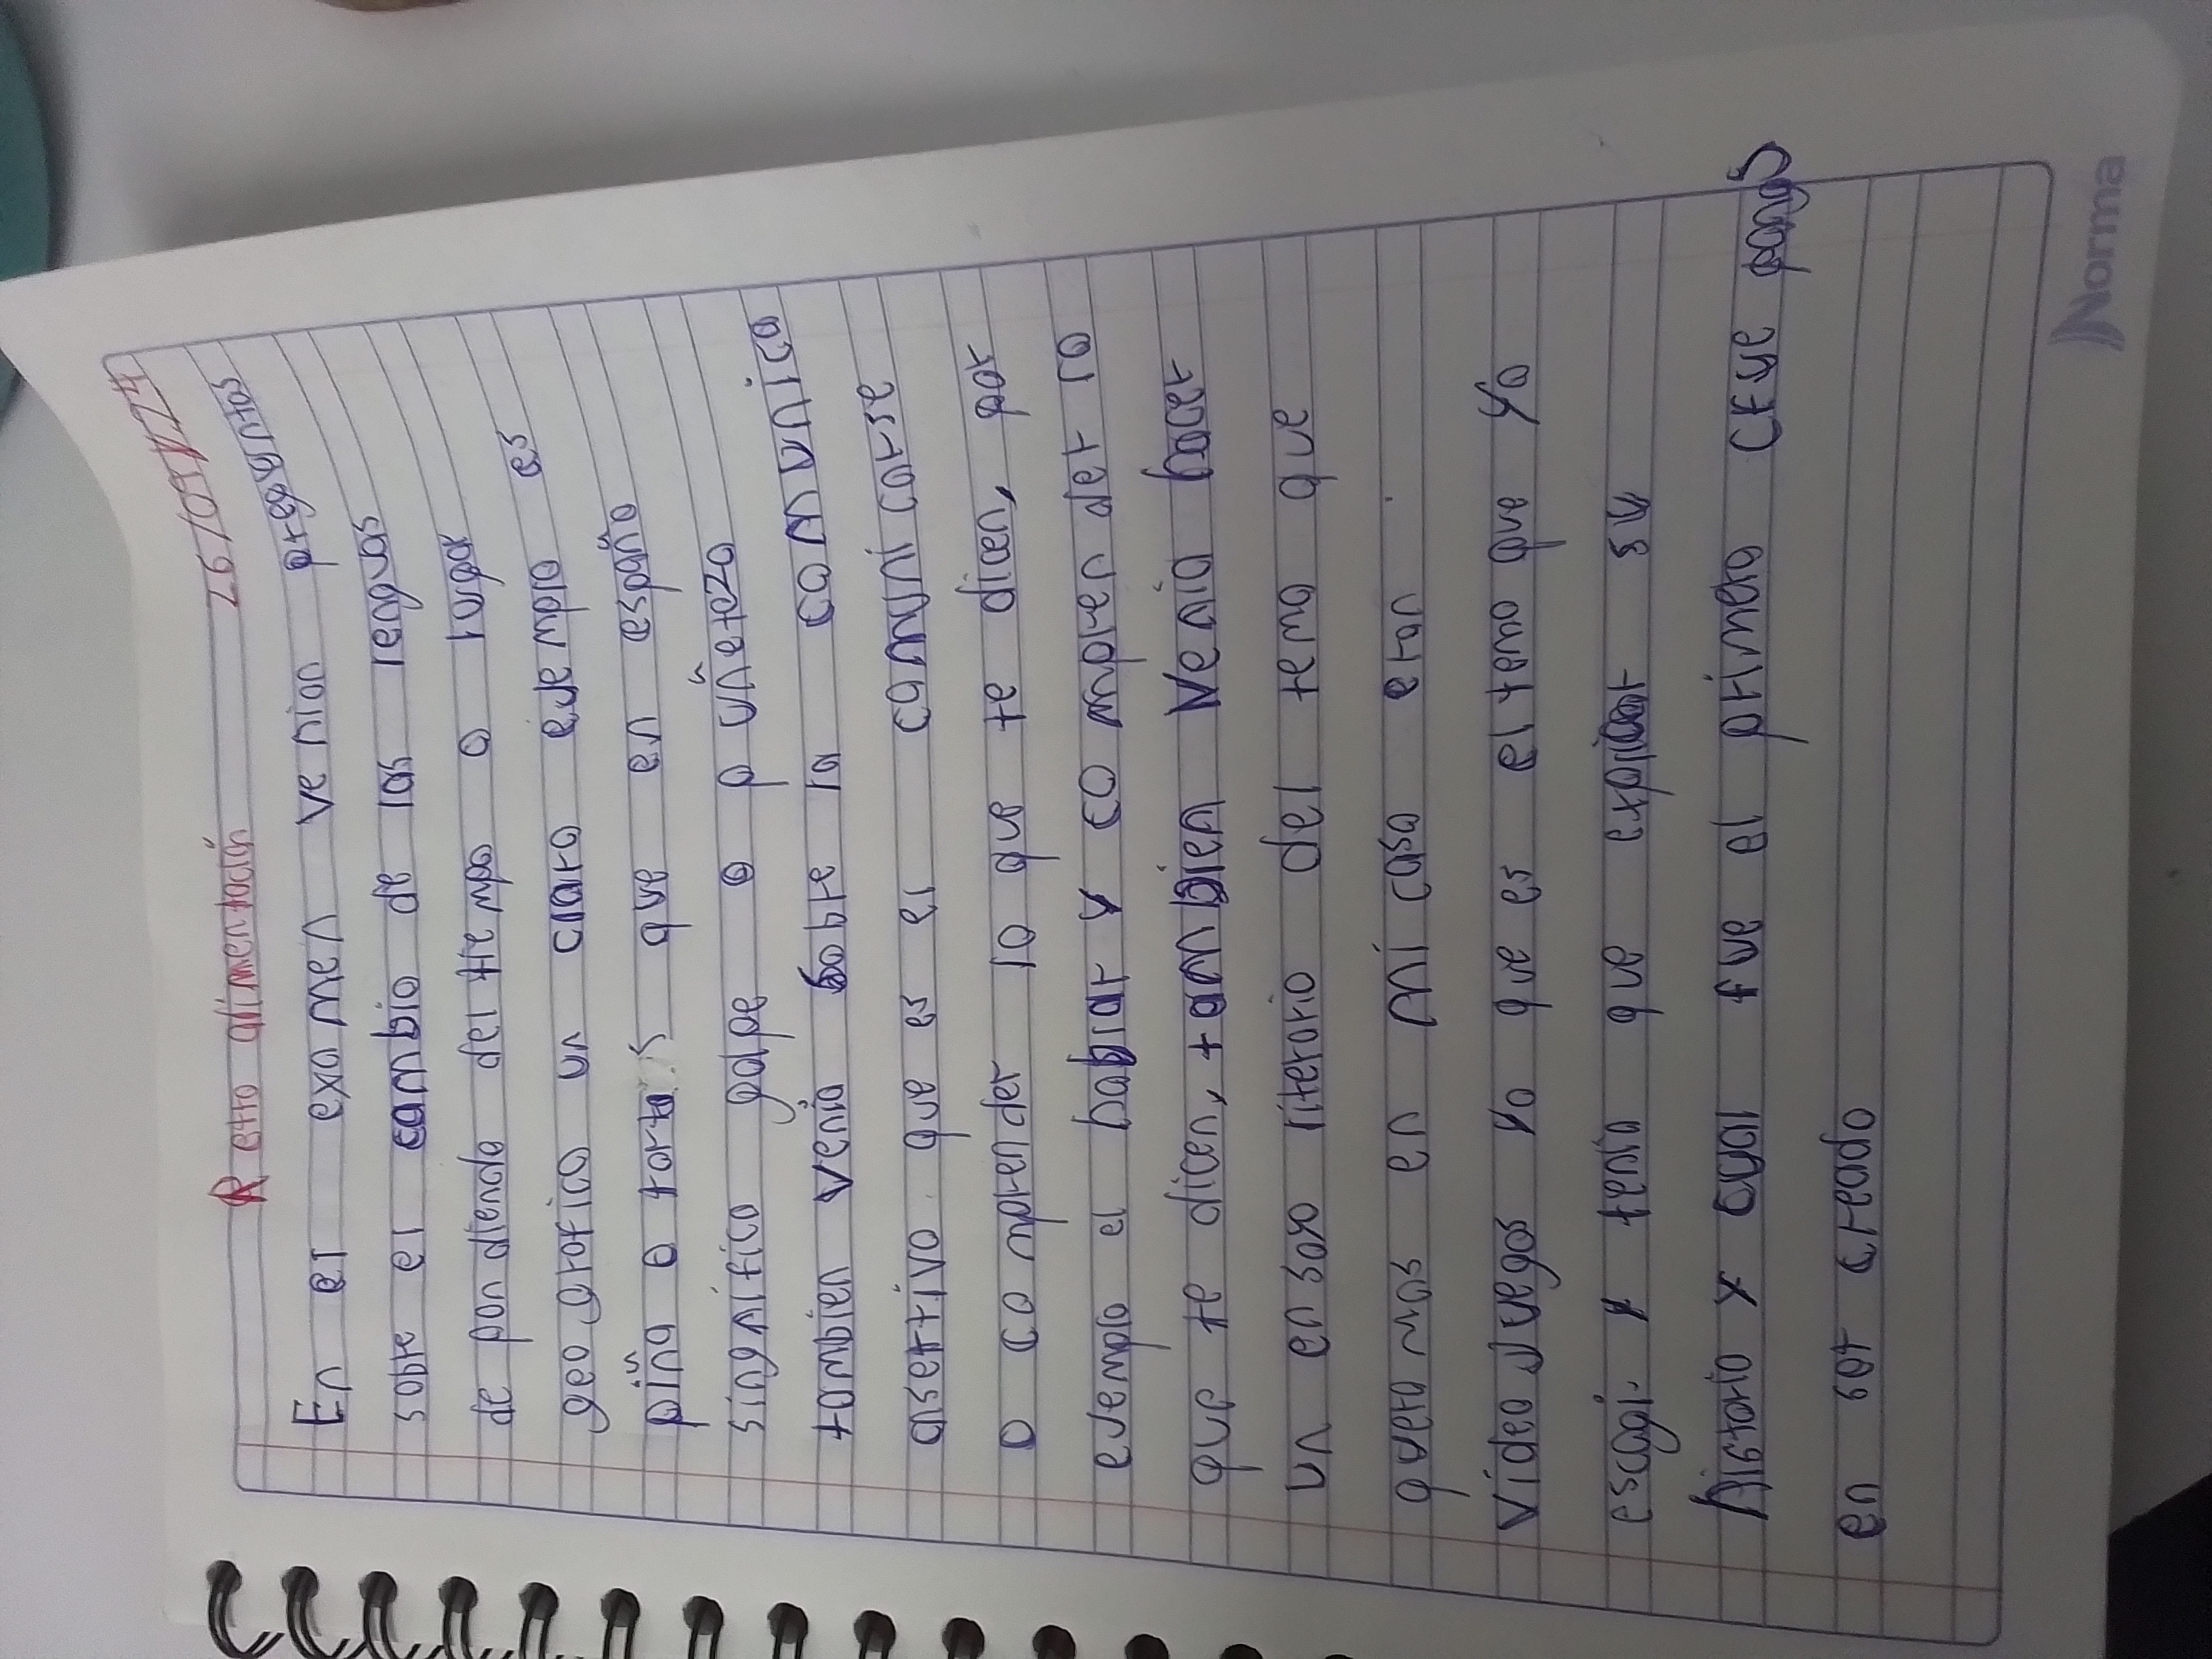 Retro alimentación 26/09/24
En el examen venion preguntas
sobre el cambio de las lenguas
de pon diendo del tiempo o lugar
geo grafico un claro evemplo es
piña o torta que en españo
singnifico golpe o puñetazo
tambien venia sobre la comunica
asertivo que es el comuni carse
o comprender lo que te dicen, por
evemplo el hablar y compren der lo
que te dicen, tambien Nenia hacer
un ensaso literario del tema que
quera mos en mi caso eran
video Juegos yo que es el temo que yo
escogi. y tenia que explicar su
historio y cual fue el primero
en ser creado
Norma